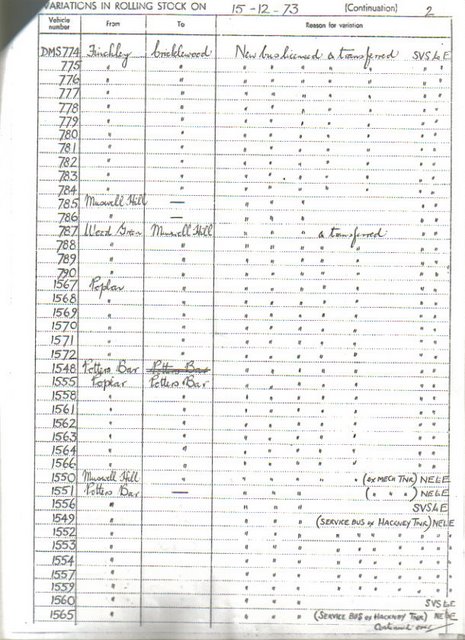 VARIATIONS IN ROLLING STOCK ON 15-12-73 (Continuation) 2
Vehicle number From To Reason for variation
DMS774 Finchley Cricklewood New bus licensed & transferred SVSLE
775 " " " " " " " " "
776 " " " " " " " " "
777 " " " " " " " " "
778 " " " " " " " " "
779 " " " " " " " " "
780 " " " " " " " " "
781 " " " " " " " " "
782 " " " " " " " " "
783 " " " " " " " " "
784 " " " " " " " " "
785 Muswell Hill — " " " " "
786 " — " " " " "
787 Wood Green Muswell Hill " " " & transferred " "
788 " " " " " " " " "
789 " " " " " " " " "
790 " " " " " " " " "
1567 Poplar " " " " " " " "
1568 " " " " " " " " "
1569 " " " " " " " " "
1570 " " " " " " " " "
1571 " " " " " " " " "
1572 " " " " " " " " "
1548 Potters Bar Potters Bar " " " " " " "
1555 Poplar Potters Bar " " " " " " "
1558 " " " " " " " " "
1561 " " " " " " " " "
1562 " " " " " " " " "
1563 " " " " " " " " "
1564 " " " " " " " " "
1566 " " " " " " " " "
1550 Muswell Hill " " " " " " (ex MECH TNR) NELE
1551 Potters Bar — " " " ( " " " ) NELE
1556 " " " " SVSLE
1549 " " " " (SERVICE BUS ex HACKNEY TNR) NELE
1552 " " " " " " " " " "
1553 " " " " " " " " " "
1554 " " " " " " " " " "
1557 " " " " " " " " " "
1559 " " " " " " " " " "
1560 " " " " SVSLE
1565 " " " " (SERVICE BUS ex HACKNEY TNR) NELE
Continued over